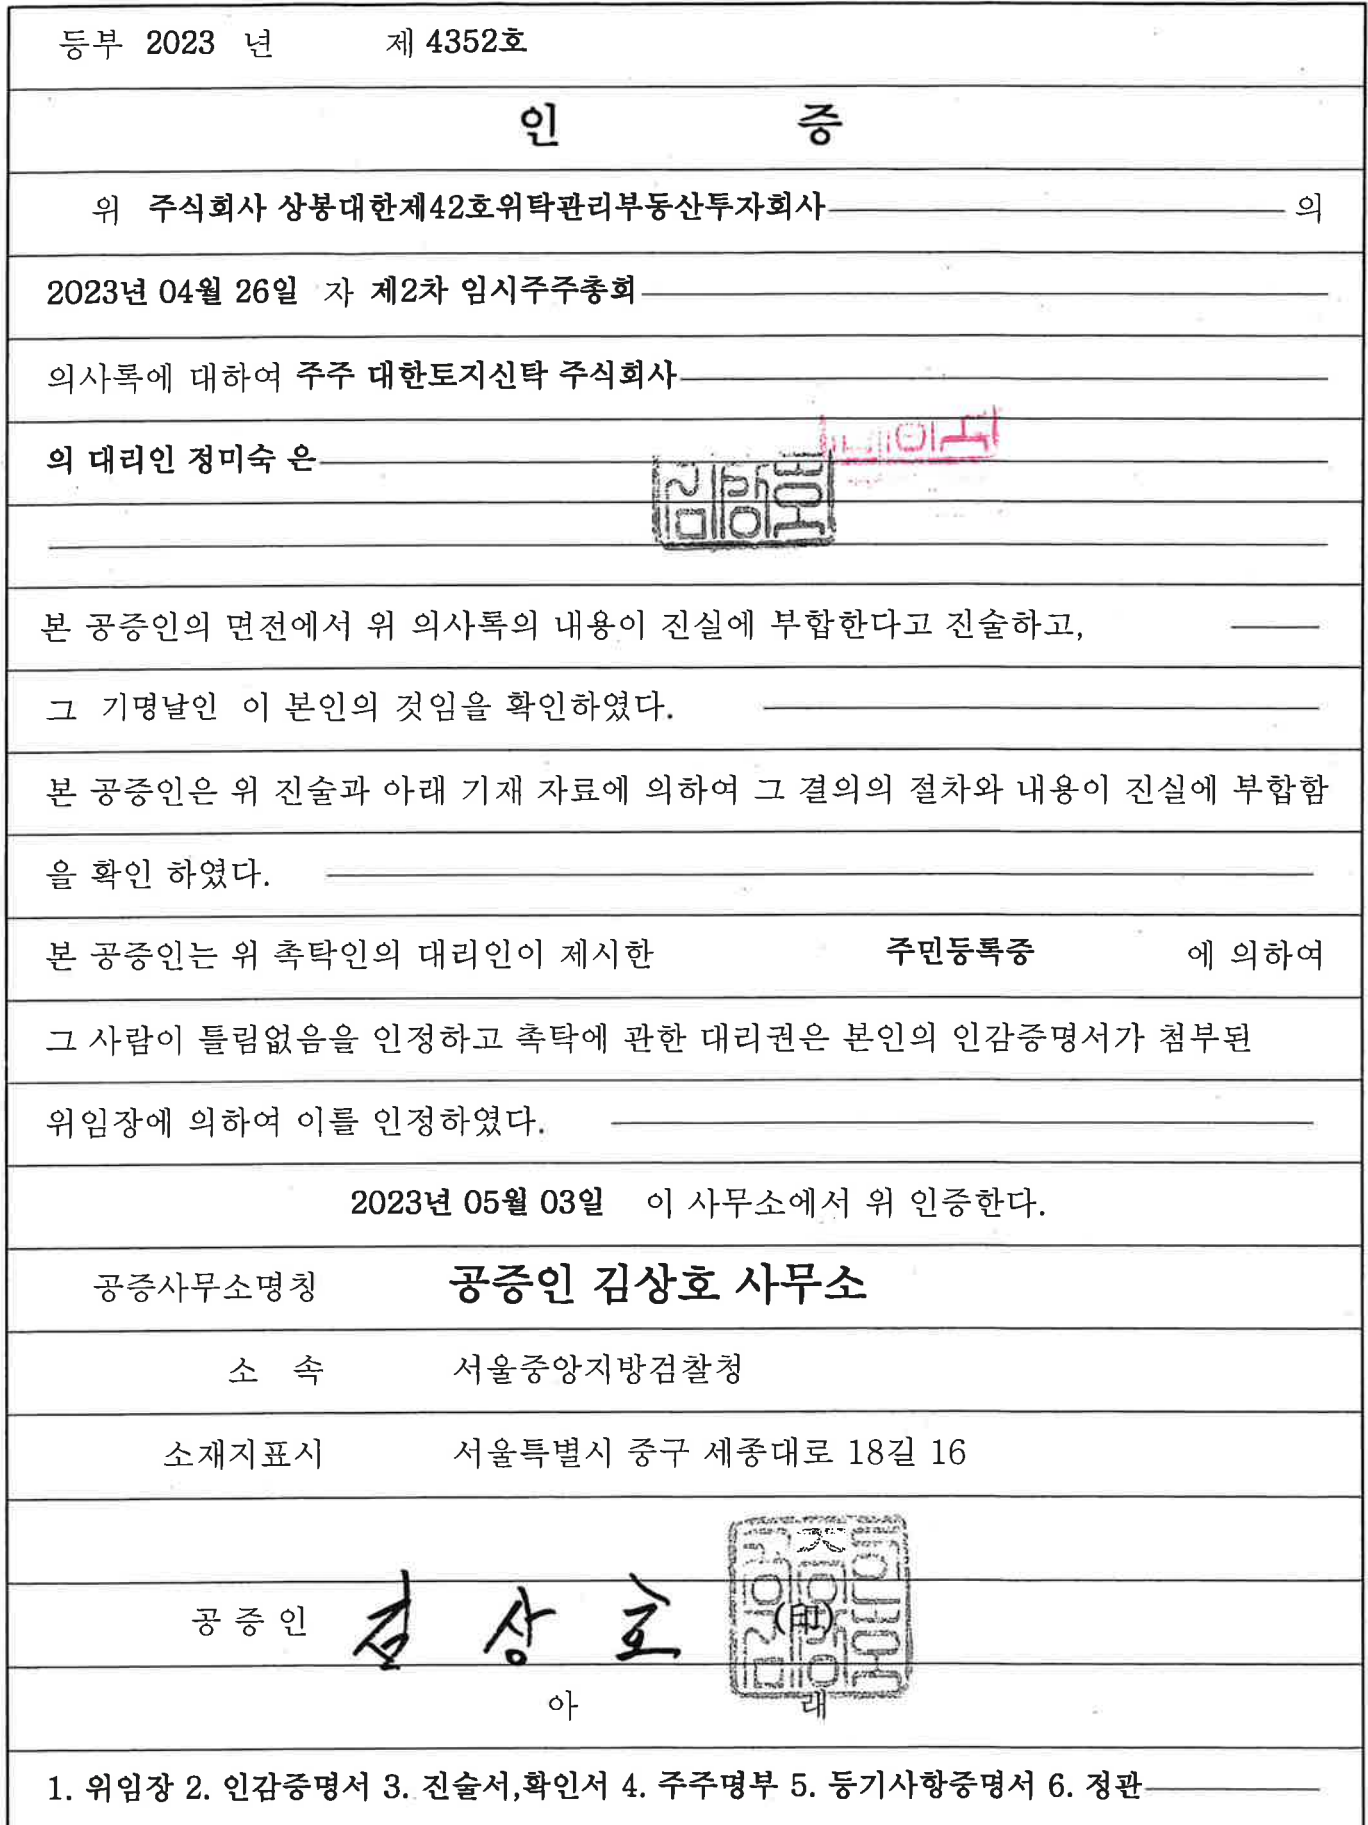 등부 2023 년 제 4352호
인 증
위 주식회사 상봉대한제42호위탁관리부동산투자회사 의
2023년 04월 26일 자 제2차 임시주주총회
의사록에 대하여 주주 대한토지신탁 주식회사
의 대리인 정미숙 은
본 공증인의 면전에서 위 의사록의 내용이 진실에 부합한다고 진술하고,
그 기명날인 이 본인의 것임을 확인하였다.
본 공증인은 위 진술과 아래 기재 자료에 의하여 그 결의의 절차와 내용이 진실에 부합함
을 확인 하였다.
본 공증인는 위 촉탁인의 대리인이 제시한 주민등록증 에 의하여
그 사람이 틀림없음을 인정하고 촉탁에 관한 대리권은 본인의 인감증명서가 첨부된
위임장에 의하여 이를 인정하였다.
2023년 05월 03일 이 사무소에서 위 인증한다.
공증사무소명칭 공증인 김상호 사무소
소 속 서울중앙지방검찰청
소재지표시 서울특별시 중구 세종대로 18길 16
공 증 인 김 상 호 (印)
아 래
1. 위임장 2. 인감증명서 3. 진술서,확인서 4. 주주명부 5. 등기사항증명서 6. 정관